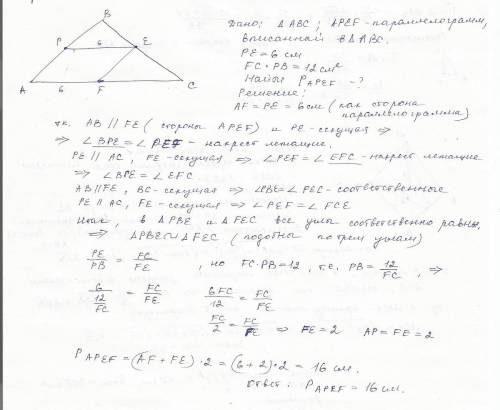 B
P 6 E
A 6 F C
Дано: △ABC; APEF - параллелограмм,
вписанный в △ABC.
PE = 6 см
FC · PB = 12 см²
Найти P APEF - ?
Решение:
AF = PE = 6 см (как сторона
параллелограмма)
т.к. AB || FE (стороны APEF) и PE - секущая ⇒
⇒ ∠BPE = ∠PEF - накрест лежащие.
PE || AC, FE - секущая ⇒ ∠PEF = ∠EFC - накрест лежащие
⇒ ∠BPE = ∠EFC
AB || FE, BC - секущая ⇒ ∠PBE = ∠FEC - соответственные
PE || AC, FE - секущая ⇒ ∠PEF = ∠FCE
Итак, в △PBE и △FEC все углы соответственно равны,
⇒ △PBE ∾ △FEC (подобны по трем углам)
PE/PB = FC/FE, но FC·PB = 12, т.е. PB = 12/FC, ⇒
6/(12/FC) = FC/FE 6FC/12 = FC/FE
FC/2 = FC/FE ⇒ FE = 2 AP = FE = 2
P APEF = (AF + FE) · 2 = (6 + 2) · 2 = 16 см.
Ответ: P APEF = 16 см.